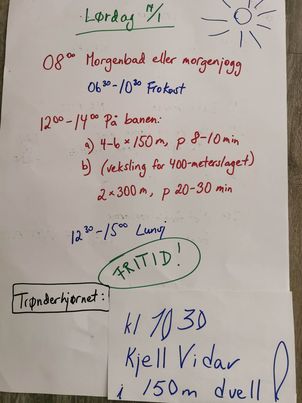 Lørdag 17/1
08⁰⁰ Morgenbad eller morgenjogg
06³⁰-10³⁰ Frokost
12⁰⁰-14⁰⁰ På banen:
a) 4-6 x 150 m, p 8-10 min
b) (veksling for 400-meterslaget)
2 x 300 m, p 20-30 min
12³⁰-15⁰⁰ Lunsj
FRITID!
Trønderhjørnet:
kl 10 30
Kjell Vidar
i 150m duell!